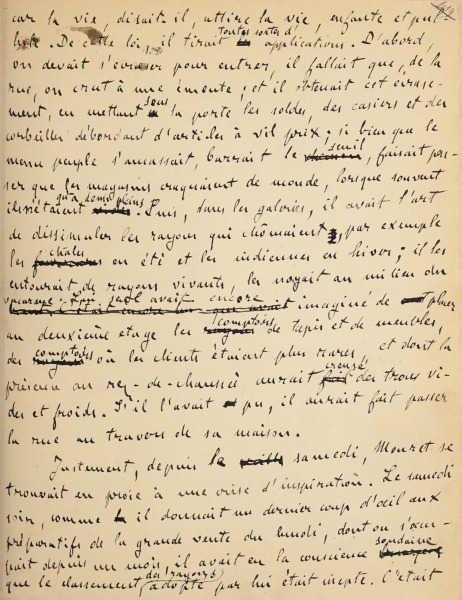 car la vie, disait-il, attire la vie, enfante et pul-
lule. De cette loi, il tirait toutes sortes d'applications. D'abord,
on devait s'écraser pour entrer, il fallait que, de la
rue, on crût à une émeute; et il obtenait cet écrase-
ment, en mettant sous la porte les soldes, des casiers et des
corbeilles débordant d'articles à vil prix; si bien que le
menu peuple s'amassait, barrait le seuil, faisait pen-
ser que les magasins craquaient de monde, lorsque souvent
ils n'étaient qu'à demi pleins. Puis, dans les galeries, il avait l'art
de dissimuler les rayons qui chômaient, par exemple
les châles en été et les indiennes en hiver; il les
entourait de rayons vivants, les noyait au milieu du
vacarme. Lui seul avait encore imaginé de placer
au deuxième étage les comptoirs de tapis et de meubles,
des comptoirs où les clients étaient plus rares, et dont la
présence au rez-de-chaussée aurait creusé des trous vi-
des et froids. S'il l'avait pu, il aurait fait passer
la rue au travers de sa maison.
Justement, depuis le samedi, Mouret se
trouvait en proie à une crise d'inspiration. Le samedi
soir, comme il donnait un dernier coup d'œil aux
préparatifs de la grande vente du lundi, dont on s'occu-
pait depuis un mois, il avait eu la conscience soudaine
que le classement des rayons adopté par lui était inepte. C'était